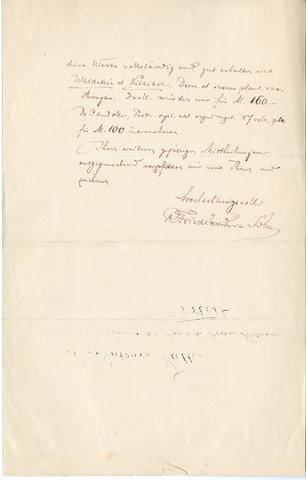 diese Werke vollständig und gut erhalten sind
Waldstein et Kitaibel, Descr. et icones plant. rar.
Hungar. 3 voll. würden wir für M. 160
De Candolle, Prodr. syst. nat. regni veget. 17 voll.
für M. 100 übernehmen.
Ihren weiteren gefälligen Mittheilungen
entgegensehend empfehlen wir uns Ihnen und
zeichnen
hochachtungsvoll
R Friedländer & Sohn